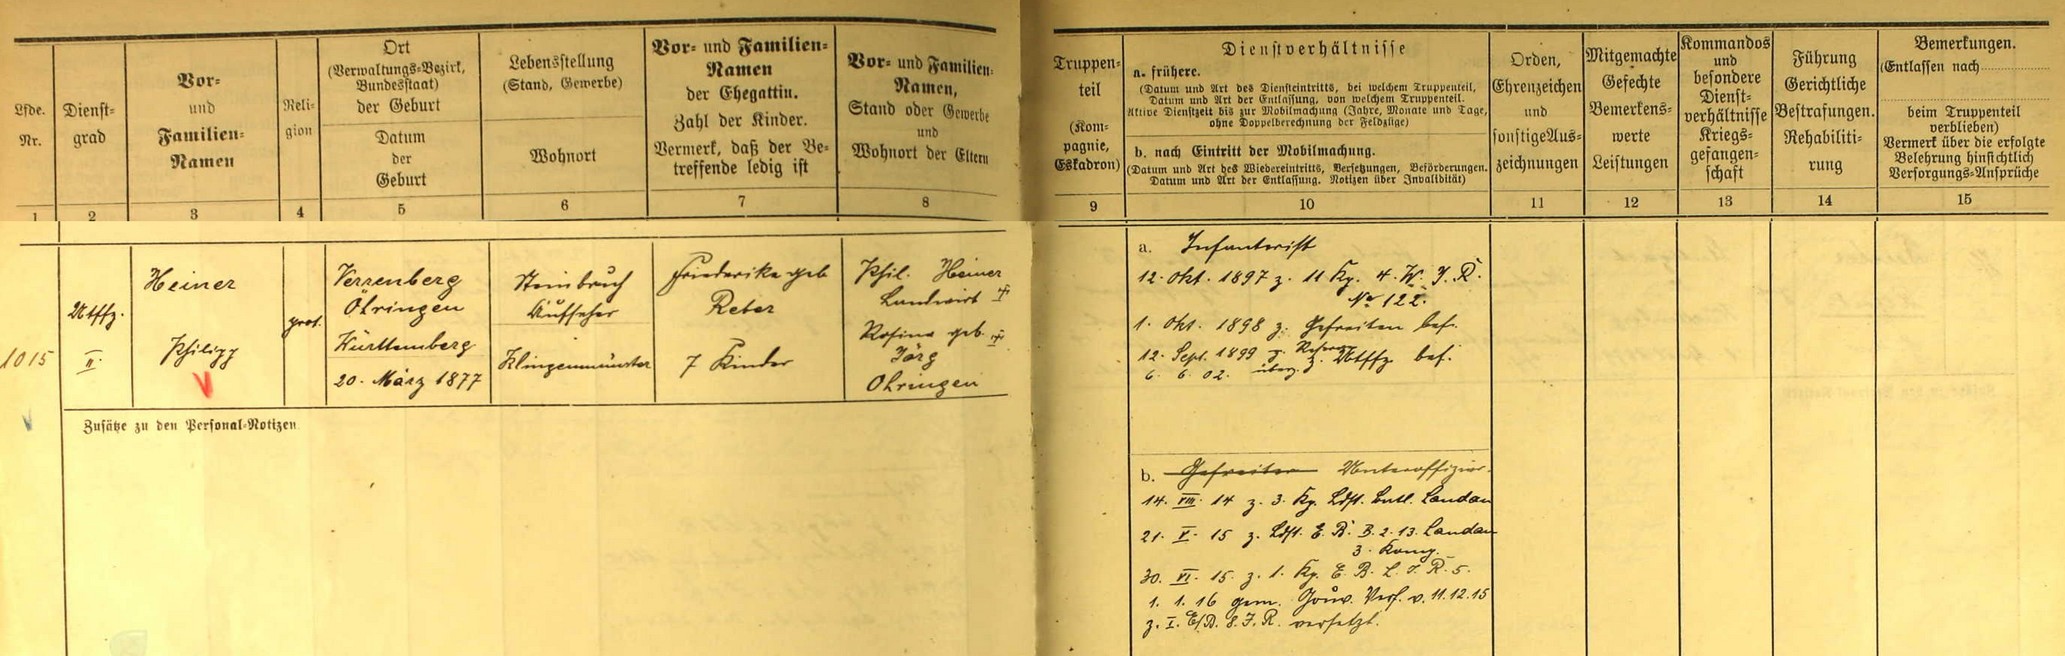 Lfde.
Nr.
Dienst-
grad
Vor-
und
Familien-
Namen
Reli-
gion
Ort
(Verwaltungs-Bezirk,
Bundesstaat)
der Geburt
Datum
der
Geburt
Lebensstellung
(Stand, Gewerbe)
Wohnort
Vor- und Familien-
Namen
der Ehegattin.
Zahl der Kinder.
Vermerk, daß der Be-
treffende ledig ist
Vor- und Familien-
Namen,
Stand oder Gewerbe
und
Wohnort der Eltern
1 2 3 4 5 6 7 8
Truppen-
teil
(Kom-
pagnie,
Eskadron)
Dienstverhältnisse
a. frühere.
(Datum und Art des Diensteintritts, bei welchem Truppenteil,
Datum und Art der Entlassung, von welchem Truppenteil.
Aktive Dienstzeit bis zur Mobilmachung (Jahre, Monate und Tage,
ohne Doppelberechnung der Feldzüge)
b. nach Eintritt der Mobilmachung.
(Datum und Art des Wiedereintritts, Versetzungen, Beförderungen.
Datum und Art der Entlassung. Notizen über Invalidität)
Orden,
Ehrenzeichen
und
sonstige Aus-
zeichnungen
Mitgemachte
Gefechte
Bemerkens-
werte
Leistungen
Kommandos
und
besondere
Dienst-
verhältnisse
Kriegs-
gefangen-
schaft
Führung
Gerichtliche
Bestrafungen.
Rehabiliti-
rung
Bemerkungen.
(Entlassen nach
beim Truppenteil
verblieben)
Vermerk über die erfolgte
Belehrung hinsichtlich
Versorgungs-Ansprüche
9 10 11 12 13 14 15
1015
Utffz.
II.
Heiner
Philipp
prot.
Verrenberg
Öhringen
Württemberg
20. März 1877
Steinbruch
Aufseher
Klingenmünster
Friederike geb
Reber
7 Kinder
Phil. Heiner
Landwirt †
Rosina geb. †
Jörg
Öhringen
Zusätze zu den Personal-Notizen
a. Infanterist
12. Okt. 1897 z. 11 Kp. 4. W. J. R.
No 122.
1. Okt. 1898 z. Gefreiten bef.
12. Sept. 1899 z. Utffz bef.
6. 6. 02. überg. z. Reserve
b. Gefreiter Unteroffizier.
14. VIII. 14 z. 3. Kp. Ldst. Batl. Landau
21. V. 15 z. Ldst. E. B. B. 2. 13. Landau
3. Komp.
30. VI. 15 z. 1. Kp. E. B. L. J. R. 5.
1. 1. 16 gem. Gouv. Verf. v. 11.12.15
z. I. E/B. 8. J. R. versetzt.